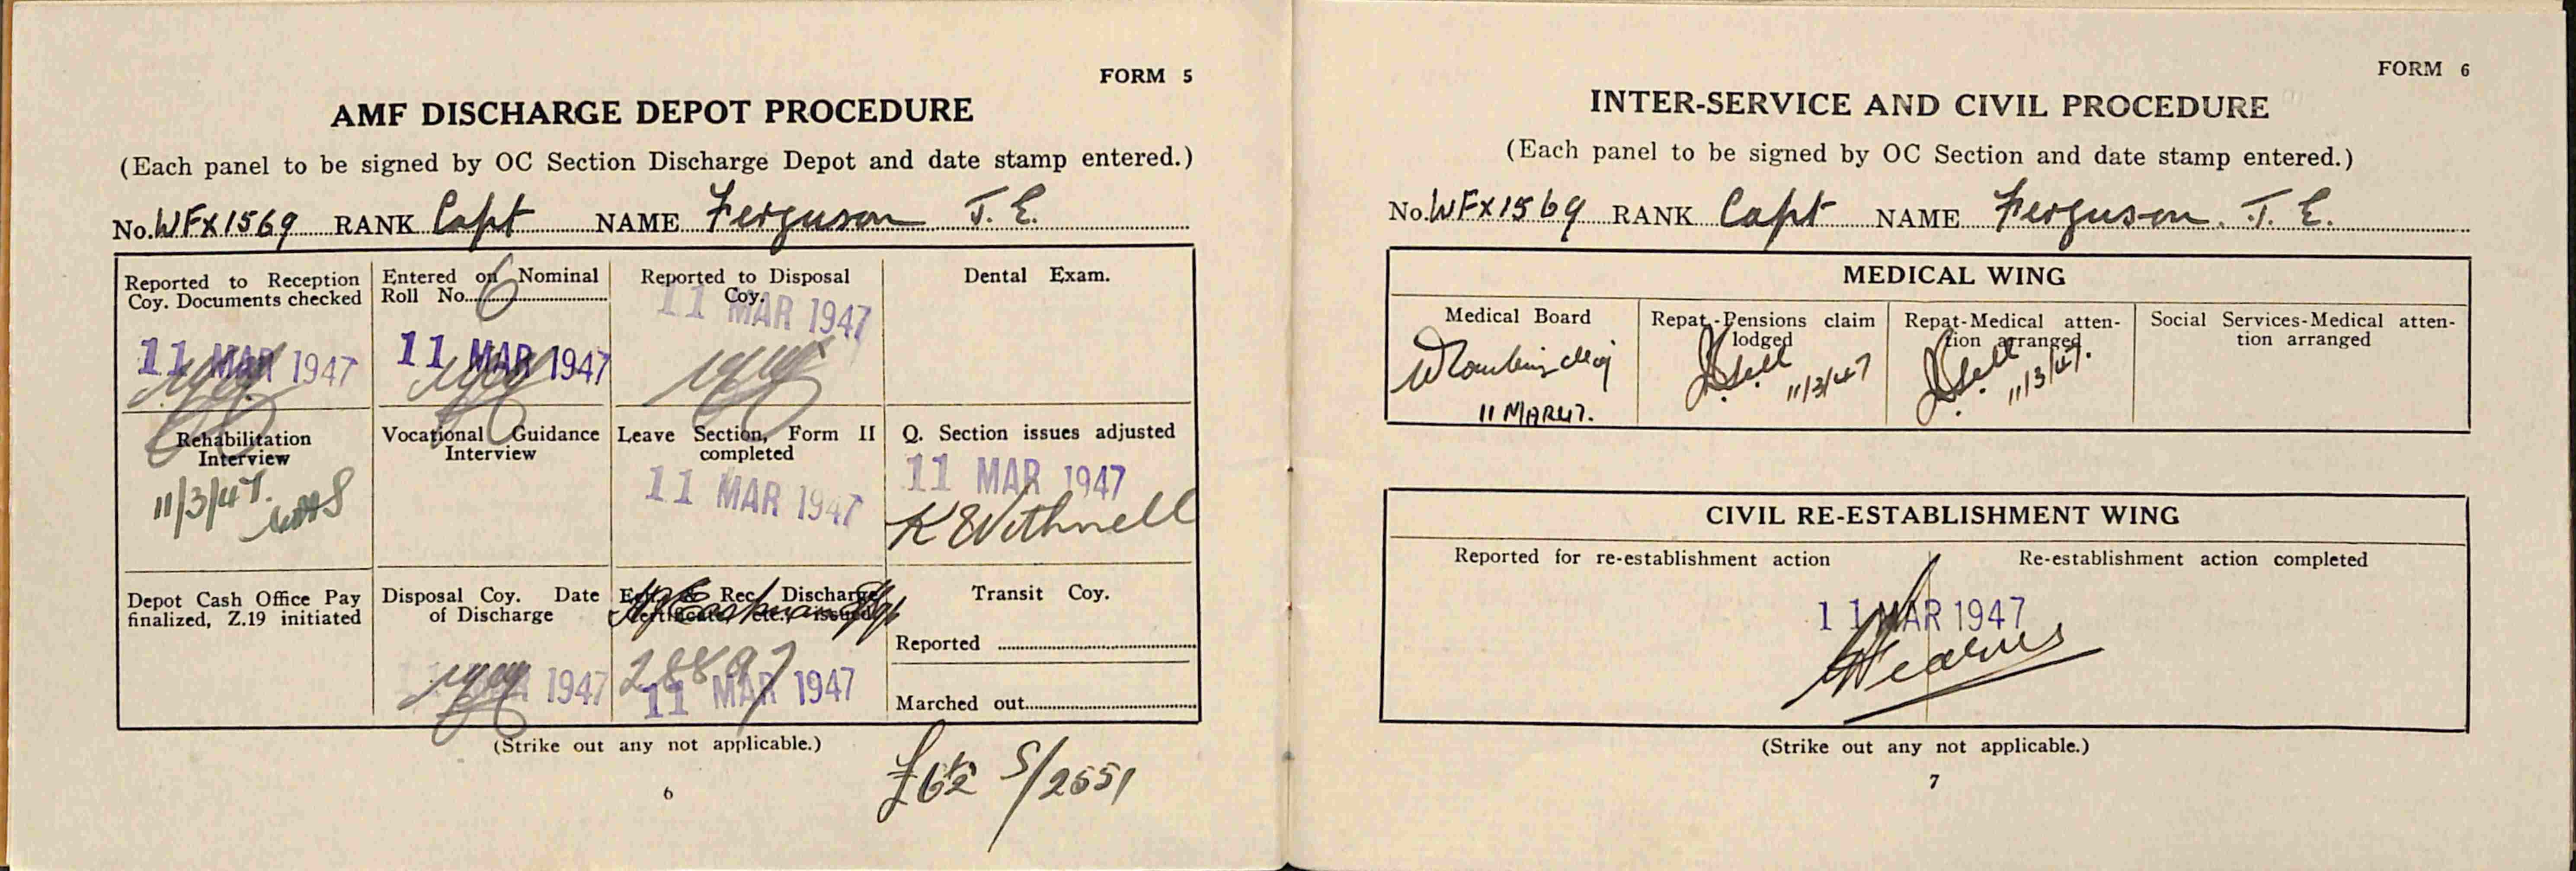 FORM 5
AMF DISCHARGE DEPOT PROCEDURE
(Each panel to be signed by OC Section Discharge Depot and date stamp entered.)
No. WFX1569 RANK Capt NAME Ferguson J. E.
Reported to Reception
Coy. Documents checked
11 MAR 1947
Entered on Nominal
Roll No. 6
11 MAR 1947
Reported to Disposal
Coy.
11 MAR 1947
Dental Exam.
Rehabilitation
Interview
11/3/47.
Vocational Guidance
Interview
Leave Section, Form II
completed
11 MAR 1947
Q. Section issues adjusted
11 MAR 1947
K Withnell
Depot Cash Office Pay
finalized, Z.19 initiated
Disposal Coy. Date
of Discharge
1947
Rec. Discharge
Certificate, etc., issued
28897
11 MAR 1947
Transit Coy.
Reported
Marched out
(Strike out any not applicable.)
£62 S/2551
6
FORM 6
INTER-SERVICE AND CIVIL PROCEDURE
(Each panel to be signed by OC Section and date stamp entered.)
No. WFX1569 RANK Capt NAME Ferguson. J. E.
MEDICAL WING
Medical Board
11 MAR 47.
Repat.-Pensions claim
lodged
11/3/47
Repat-Medical atten-
tion arranged
11/3/47.
Social Services-Medical atten-
tion arranged
CIVIL RE-ESTABLISHMENT WING
Reported for re-establishment action
Re-establishment action completed
11 MAR 1947
Hearns
(Strike out any not applicable.)
7